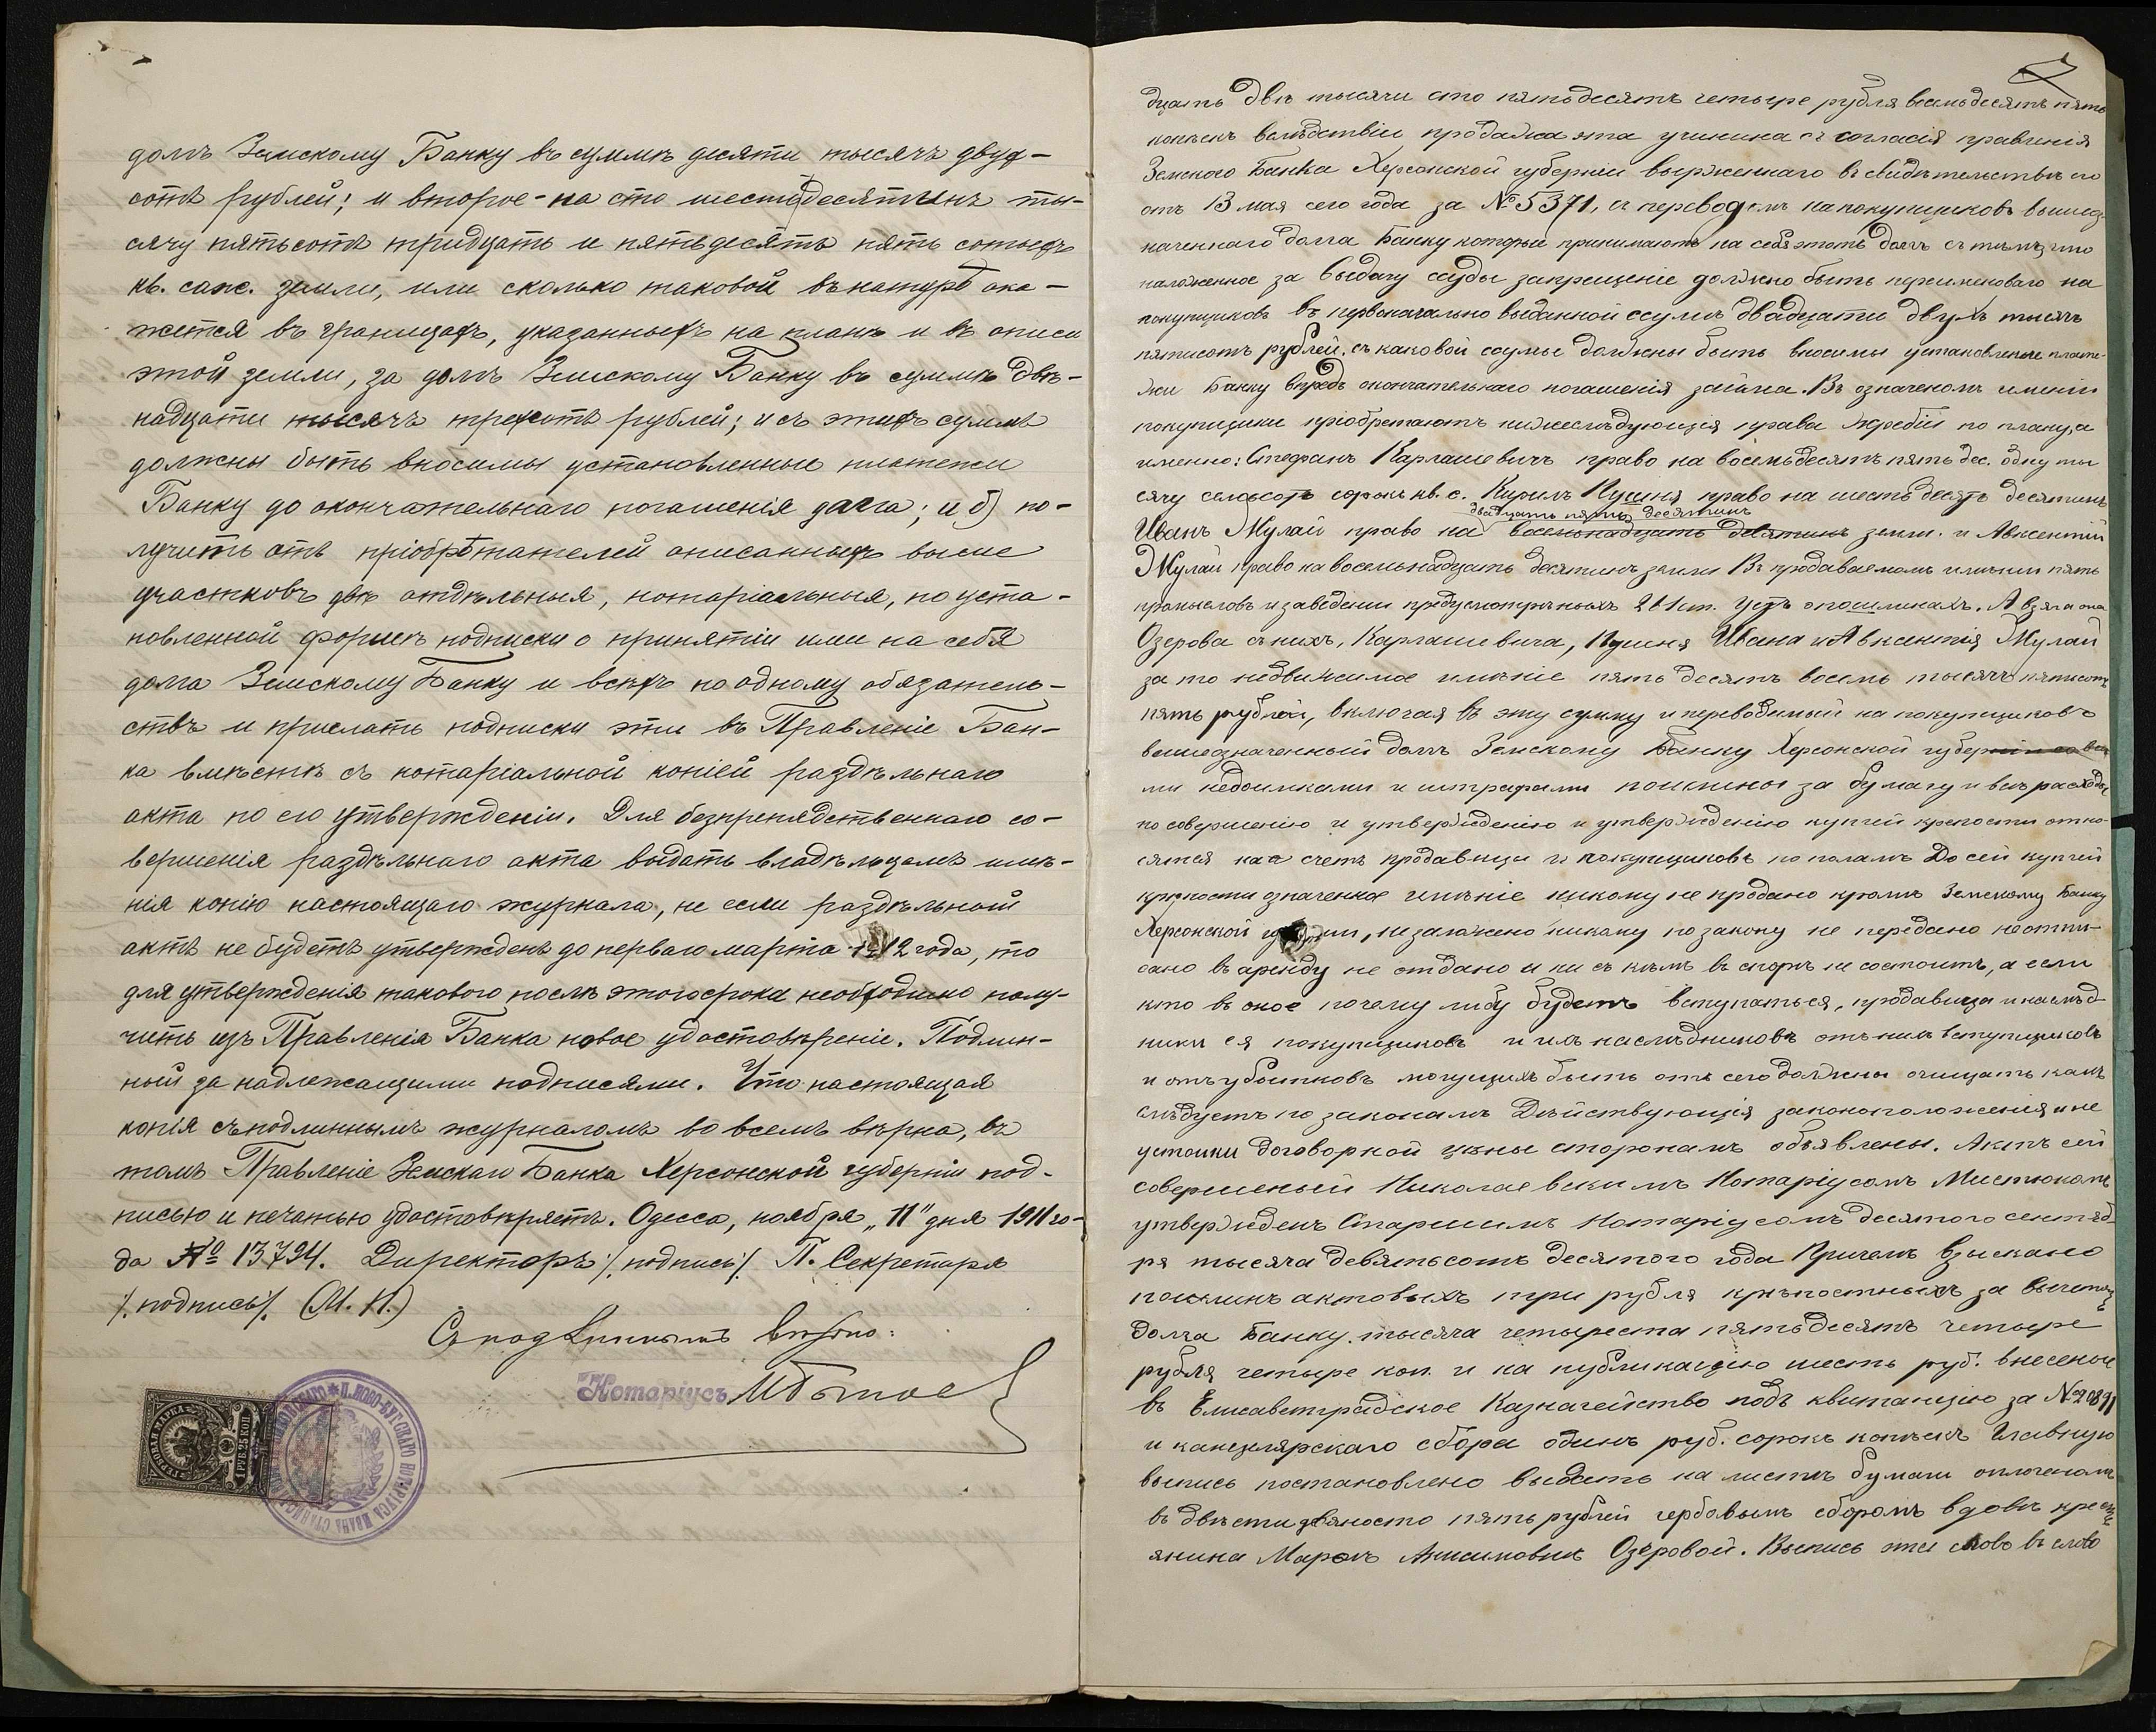 долгъ Земскому Банку въ суммѣ десяти тысячъ двух-
сотъ рублей; и второе - на сто шестьдесятинъ ты-
сячу пятьсотъ тридцать и пятьдесятъ пять сотыхъ
кв. саж. земли, или сколько таковой въ натурѣ ока-
жется въ границахъ, указанныхъ на планѣ и въ описи
этой земли, за долгъ Земскому Банку въ суммѣ двѣ-
надцати тысячъ трехсотъ рублей; и съ этихъ суммъ
должны быть вносимы установленные платежи
Банку до окончательнаго погашенія долга; и б) по-
лучить отъ пріобрѣтателей описанныхъ выше
участковъ двѣ отдѣльныя, нотаріальныя, по уста-
новленной формѣ подписки о принятіи ими на себя
долга Земскому Банку и всѣхъ по одному обязатель-
ствъ и прислать подписки эти въ Правленіе Бан-
ка вмѣстѣ съ нотаріальной копіей раздѣльнаго
акта по его утвержденіи. Для безпрепядственнаго со-
вершенія раздѣльнаго акта выдать владѣльцамъ имѣ-
нія копію настоящаго журнала, не если раздѣльный
актъ не будетъ утвержденъ до перваго марта 1912 года, то
для утвержденія такового послѣ этого срока необходимо полу-
чить изъ Правленія Банка новое удостовѣреніе. Подлин-
ный за надлежащими подписями. Что настоящая
копія съ подлиннымъ журналомъ во всемъ вѣрна, въ
томъ Правленіе Земскаго Банка Херсонской губерніи под-
писью и печатью удостовѣряетъ. Одесса, ноября „11" дня 1911 го-
да № 13794. Директоръ /подпись/. П. Секретаря
/подпись/. (М. П.)
Съ подлиннымъ вѣрно:
Нотаріусъ
ГЕРБОВАЯ МАРКА 1 РУБ. 25 КОП.
Н. НОВО-БУГСКАГО НОТАРІУСА ИВАНА
дцать двѣ тысячи сто пятьдесятъ четыре рубля восемьдесятъ пять
копѣекъ вслѣдствіи продажа эта учинена съ согласія правленія
Земского Банка Херсонской губерніи выраженнаго въ свидѣтельствѣ его
отъ 13 мая сего года за № 5371, съ переводомъ на покупщиковъ вышеоз
наченнаго долга Банку которые принимаютъ на себя этотъ долгъ съ тѣмъ, что
наложенное за выдачу ссуды запрещеніе должно быть переименовано на
покупщиковъ въ первоначально выданной ссумѣ двадцати двухъ тысячъ
пятисотъ рублей. съ каковой ссумы должны быть вносимы установленые плате-
жи Банку впредъ окончательнаго погашенія займа. Въ означеномъ имѣніи
покупщики пріобретаютъ нижеслѣдующія права жребіи по плану, а
именно: Стефанъ Карлашевичъ право на восемьдесятъ пять дес. одну ты
сячу семьсотъ сорокъ кв. с. Кирилъ Пушня право на шестьдесятъ десятинъ
двадцать пять десятинъ
Иванъ Мулай право на восемьнадцать десятинъ земли. и Авксентій
Мулай право на восемьнадцать десятинъ земли Въ продаваемомъ имѣнии нѣтъ
промысловъ и заведении предусмотрѣныхъ 261 ст. Уст. о пошлинахъ. А взяла она
Озерова съ нихъ, Карлашевича, Пушня Ивана и Авксентія Мулай
за то недвижимое имѣніе пятьдесятъ восемь тысячъ пятисотъ
пять рублей, включая въ эту сумму и переводимый на покупщиковъ
вышеозначенный долгъ Земскому Банку Херсонской губерніи со все
ми недоимками и штрафами пошлины за бумагу и всѣ расходы
по совершенію и утвержденію и утвержденію купчей крепости отно-
сятся на счетъ продавицы и покупщиковъ по поламъ До сей купчей
крѣпости означенное имѣніе никому не продано кромѣ Земскому Банку
Херсонской губерніи, незаложено никому по закону не передано неотпи-
сано въ аренду не отдано и ни съ кѣмъ въ спорѣ не состоитъ, а если
кто въ оное почему либу будетъ вступаться, продавица и наслѣд-
ники ея покупщиковъ и ихъ наслѣдниковъ отъ нихъ вступщиковъ
и отъ убытковъ могущихъ быть отъ сего должны очищать какъ
слѣдуетъ по законамъ Дѣйствующія законоположенія и не
устойки договорной цѣны сторонамъ объявлены. Актъ сей
совершеный Николаевскимъ Нотаріусомъ
утвержденъ Старшимъ Нотаріусомъ десятого сентяб-
ря тысяча девятьсотъ десятого года Причемъ взыскано
пошлинъ актовыхъ три рубля крѣпостныхъ за вычетомъ
долга Банку. тысяча четыреста пятьдесятъ четыре
рубля четыре коп. и на публикацію шесть руб. внесеные
въ Елисаветградское Казначейство подъ квитанцію за № 20891
и канцелярскаго сбора одинъ руб. сорокъ копѣекъ Главную
выпись постановлено выдать на листѣ бумаги оплоченомъ
въ двѣсти девяносто пять рублей гербовымъ сборомъ вдовѣ кресть
янина Марѳѣ Озеровой. Выпись эта слово въ слово